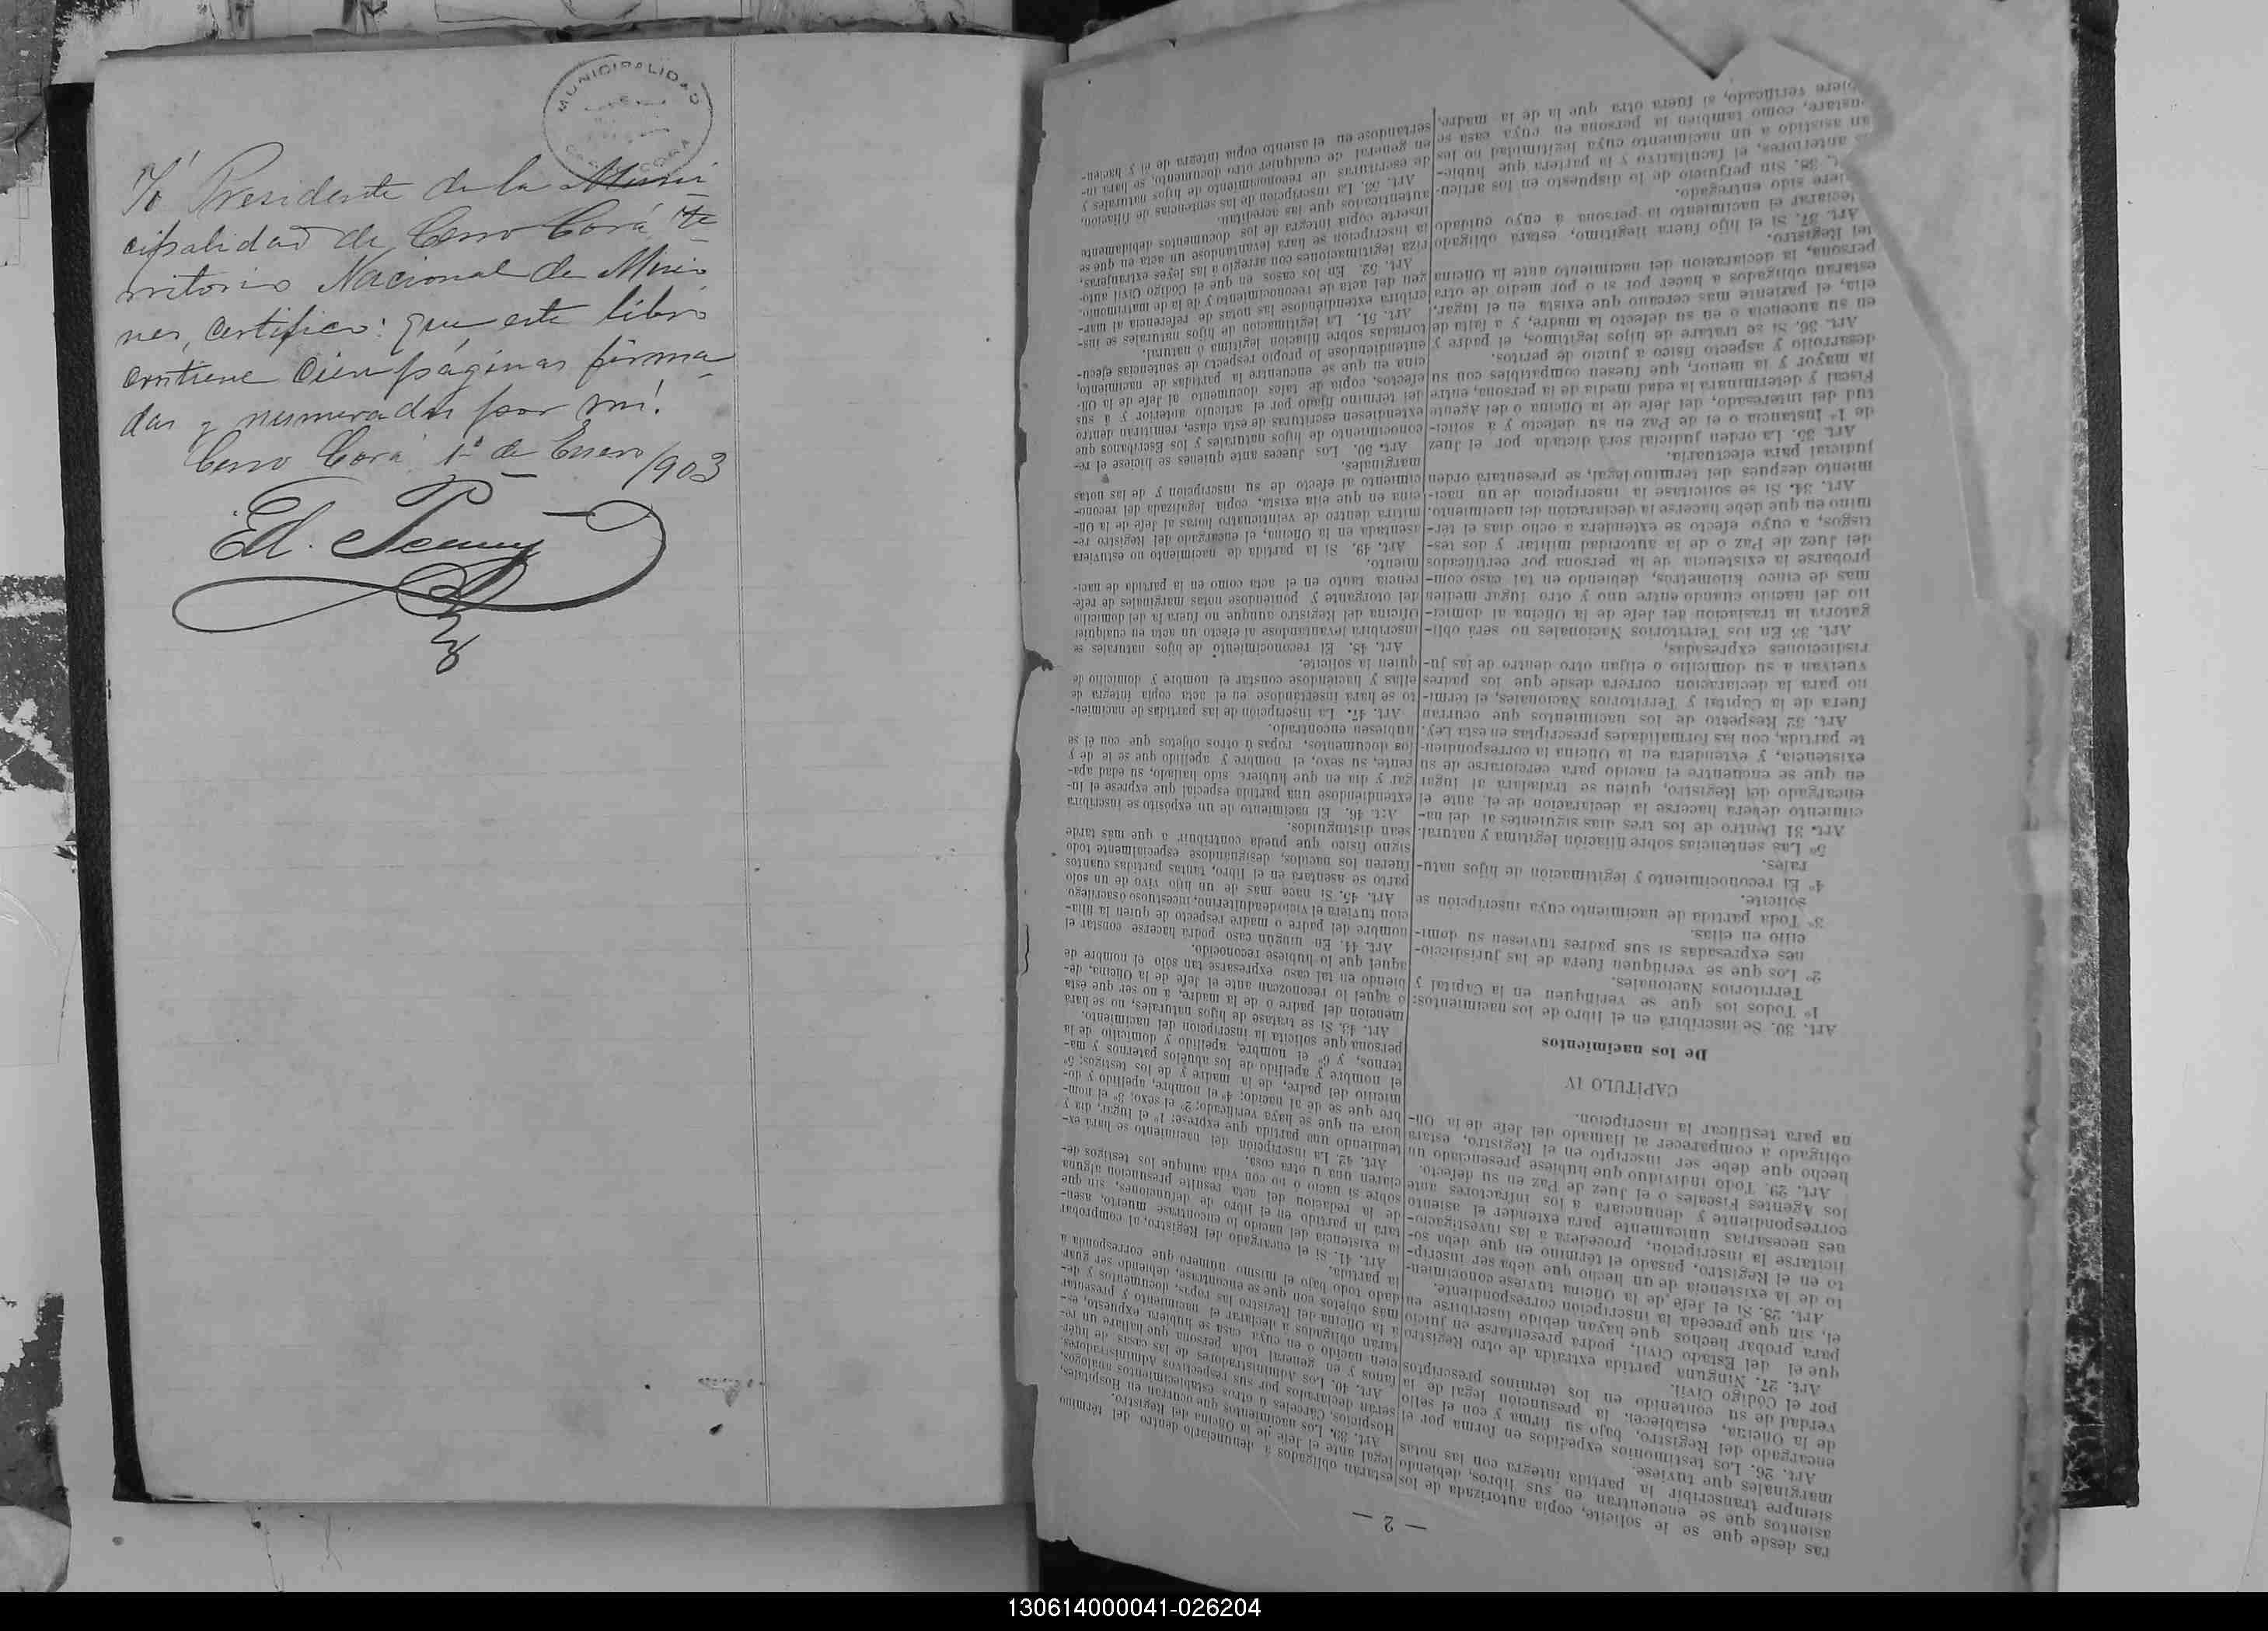 MUNICIPALIDAD
CERRO CORA
Yó Presidente de la Muni
cipalidad de Cerro Corá te
rritorio Nacional de Misio
nes, Certifico: que este libro
contiene Cien páginas firma
das y numeradas por mi.
Cerro Corá 1º de Enero /903
— 2 —
ras desde que se le solicite, copia autorizada de los
asientos que se encuentran en sus libros, debiendo
siempre transcribir la partida integra con las notas
marginales que tuviese.
Art. 26. Los testimonios expedidos en forma por el
encargado del Registro, bajo su firma y con el sello
de la Oficina, establecen la presunción legal de la
verdad de su contenido en los términos prescriptos
por el Código Civil.
Art. 27. Ninguna partida extraída de otro Registro
que el del Estado Civil, podrá presentarse en juicio
para probar hechos que hayan debido inscribirse en
el, sin que preceda la inscripción correspondiente.
Art. 28. Si el Jefe de la Oficina tuviese conocimien-
to de la existencia de un hecho que deba ser inscrip-
to en el Registro, pasado el término en que deba so-
licitarse la inscripción, procederá á las investigacio-
nes necesarias únicamente para extender el asiento
correspondiente y denunciará á los infractores ante
los Agentes Fiscales ó el Juez de Paz en su defecto.
Art. 29. Todo individuo que hubiese presenciado un
hecho que debe ser inscripto en el Registro, estará
obligado á comparecer al llamado del Jefe de la Ofi-
na para testificar la inscripción.
CAPÍTULO IV
De los nacimientos
Art. 30. Se inscribirá en el libro de los nacimientos:
1º Todos los que se verifiquen en la Capital y
Territorios Nacionales.
2º Los que se verifiquen fuera de las jurisdiccio-
nes expresadas si sus padres tuviesen su domi-
cilio en ellas.
3º Toda partida de nacimiento cuya inscripción se
solicite.
4º El reconocimiento y legitimación de hijos natu-
rales.
5º Las sentencias sobre filiación legítima y natural.
Art. 31 Dentro de los tres días siguientes al del na-
cimiento deberá hacerse la declaración de él, ante el
encargado del Registro, quien se trasladará al lugar
en que se encuentre el nacido para cerciorarse de su
existencia, y extenderá en la Oficina la correspondien-
te partida, con las formalidades prescriptas en esta Ley.
Art. 32 Respecto de los nacimientos que ocurran
fuera de la Capital y Territorios Nacionales, el térmi-
no para la declaración correrá desde que los padres
vuelvan á su domicilio ó elijan otro dentro de las ju-
risdicciones expresadas.
Art. 33 En los Territorios Nacionales no será obli-
gatoria la traslación del Jefe de la Oficina al domici-
lio del nacido cuando entre uno y otro lugar medien
más de cinco kilómetros, debiendo en tal caso com-
probarse la existencia de la persona por certificados
del Juez de Paz ó de la autoridad militar y dos tes-
tigos, á cuyo efecto se extenderá á ocho días el tér-
mino en que debe hacerse la declaración del nacimiento.
Art. 34. Si se solicitase la inscripción de un naci-
miento después del término legal, se presentará orden
judicial para efectuarla.
Art. 35. La orden judicial será dictada por el Juez
de 1ª Instancia ó el de Paz en su defecto y á solici-
tud del interesado, del Jefe de la Oficina ó del Agente
Fiscal y determinará la edad media de la persona, entre
la mayor y la menor, que fuesen compatibles con su
desarrollo y aspecto físico á juicio de peritos.
Art. 36. Si se tratare de hijos legítimos, el padre y
en su ausencia ó en su defecto la madre, y á falta de
ella, el pariente más cercano que exista en el lugar,
estarán obligados á hacer por sí ó por medio de otra
persona, la declaración del nacimiento ante la Oficina
del Registro.
Art. 37. Si el hijo fuera ilegítimo, estará obligado
declarar el nacimiento la persona á cuyo cuidado
iere sido entregado.
t. 38. Sin perjuicio de lo dispuesto en los artícu-
anteriores, el facultativo y la partera que hubie-
an asistido á un nacimiento cuya legitimidad no les
nstare, como también la persona en cuya casa se
biere verificado, si fuera otra que la de la madre,
estarán obligados á denunciarlo dentro del término
legal ante el Jefe de la Oficina del Registro.
Art. 39. Los nacimientos que ocurran en Hospitales,
Hospicios, Cárceles ú otros establecimientos análogos,
serán declarados por sus respectivos Administradores.
Art. 40. Los Administradores de las casas de huér-
fanos y en general toda persona que hallare un re-
cien nacido ó en cuya casa se hubiera expuesto, es-
tarán obligados á declarar el nacimiento y presentar
á la Oficina del Registro las ropas, documentos y de-
más objetos con que se encontrase, debiendo ser guar
dado todo bajo el mismo número que corresponda á
la partida.
Art. 41. Si el encargado del Registro, al comprobar
la existencia del nacido lo encontrase muerto, asen-
tará la partida en el libro de defunciones, sin que
de la redación del acta resulte presunción alguna
sobre si nació ó no con vida aunque los testigos de-
claren una ú otra cosa.
Art. 42. La inscripción del nacimiento se hará ex-
tendiendo una partida que exprese: 1º el lugar, día y
hora en que se haya verificado; 2º el sexo; 3º el nom-
bre que se dé al nacido; 4º el nombre, apellido y do-
micilio del padre, de la madre y de los testigos; 5º
el nombre y apellido de los abuelos paternos y ma-
ternos, y 6º el nombre, apellido y domicilio de la
persona que solicita la inscripción del nacimiento.
Art. 43. Si se tratase de hijos naturales, no se hará
mención del padre ó de la madre, á no ser que ésta
ó aquel lo reconozcan ante el Jefe de la Oficina, de-
biendo en tal caso expresarse tan sólo el nombre de
aquel que lo hubiese reconocido.
Art. 44. En ningún caso podrá hacerse constar el
nombre del padre ó madre respecto de quien la filia-
ción tuviera el vicio de adulterino, incestuoso ó sacrilego
Art. 45. Si nace más de un hijo vivo de un solo
parto se asentará en el libro, tantas partidas cuantos
fueren los nacidos, designándose especialmente todo
signo físico que pueda contribuir á que más tarde
sean distinguidos.
Art. 46. El nacimiento de un expósito se inscribirá
extendiéndose una partida especial que exprese el lu-
gar y día en que hubiere sido hallado, su edad apa-
rente, su sexo, el nombre y apellido que se le dé y
los documentos, ropas ú otros objetos que con él se
hubiesen encontrado.
Art. 47. La inscripción de las partidas de nacimien-
to se hará insertándose en el acta copia íntegra de
ellas y haciéndose constar el nombre y domicilio de
quien la solicite.
Art. 48. El reconocimiento de hijos naturales se
inscribirá levantándose al efecto un acta en cualquier
Oficina del Registro aunque no fuera la del domicilio
del otorgante y poniéndose notas marginales de refe-
rencia tanto en el acta como en la partida de naci-
miento.
Art. 49. Si la partida de nacimiento no estuviera
asentada en la Oficina, el encargado del Registro re-
mitirá dentro de veinticuatro horas al Jefe de la Ofi-
cina en que ella exista, copia legalizada del recono-
cimiento al efecto de su inscripción y de las notas
marginales.
Art. 50. Los Jueces ante quienes se hiciese el re-
conocimiento de hijos naturales y los Escribanos que
extendiesen escrituras de esta clase, remitirán dentro
del término fijado por el artículo anterior y á sus
efectos, copia de tales documento al Jefe de la Ofi-
cina en que se encuentre la partidas de nacimiento,
entendiéndose lo propio respecto de sentencias ejecu-
toriadas sobre filiación legítima ó natural.
Art. 51. La legitimación de hijos naturales se ins-
cribirá extendiéndose las notas de referencia al mar-
gen del acta de reconocimiento y de la de matrimonio.
Art. 52. En los casos en que el Código Civil auto-
riza legitimaciones con arreglo á las leyes extranjeras,
la inscripción se hará levantándose un acta en que se
inserte copia íntegra de los documentos debidamente
autenticados que las acrediten.
Art. 53. La inscripción de las sentencias de filiación,
de escrituras de reconocimiento de hijos naturales y
en general de cualquier otro documento, se hará in-
sertándose en el asiento copia íntegra de él y hacien-
130614000041-026204